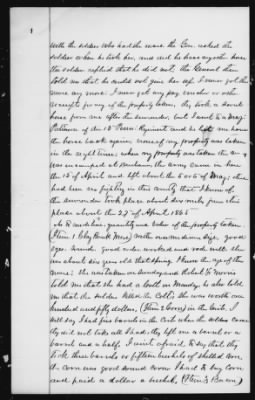 with the soldier who had the mare. the Gen. asked the
soldier where he took him, and did he leave any other horse
the soldier replied that he did not, the General then
told me that he could not give her up. I never got the
mare any more. I never got any pay voucher or other
receipts for any of the property taken, they took a sorrel
horse from me after the surrender, but I went to a Maj
of the 10 Regiment and he let me have
the horse back again; none of my property was taken
in the night time; when my property was taken the army
was encamped at the army came in here
the 15 of April and left about the 5 or 6 of May; there
had been no fighting in this county that I know of.
the surrender took place about six miles from this
place about the 27th of April 1865
As to condition, quantity and value of the property taken,
(Item 1 Bay Mare) was medium size, good
age. Sound, good order, worked and rode well. She
was about six years old that spring. I know the age of the
mare; She was taken on Sunday and Robert T. Morris
told me that she had a colt on Monday, he also told
me that the soldiers killed the Colt; she was worth one
hundred and fifty dollars, (Item 2 Corn) in the crib. I
will say I had five barrels in the crib when the soldiers came
they did not take all I had; they left me a barrel or a
barrel and a half. I aint afraid to say that they
took three barrels or fifteen bushels of shelled corn
the corn was good sound corn I had to buy corn
and paid a dollar a bushel, (Item 3 Bacon)